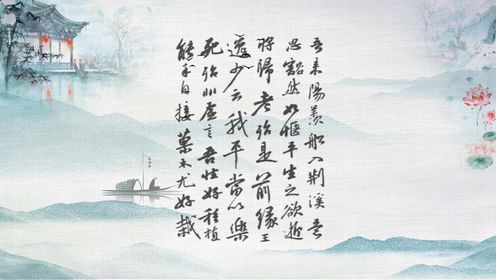 吾來陽羨船入荊溪意
思豁然如愜平生之欲逝
將歸老殆是前緣王
逸少云我卒當以樂
死殆非虛言吾性好種植
能手自接菓木尤好栽